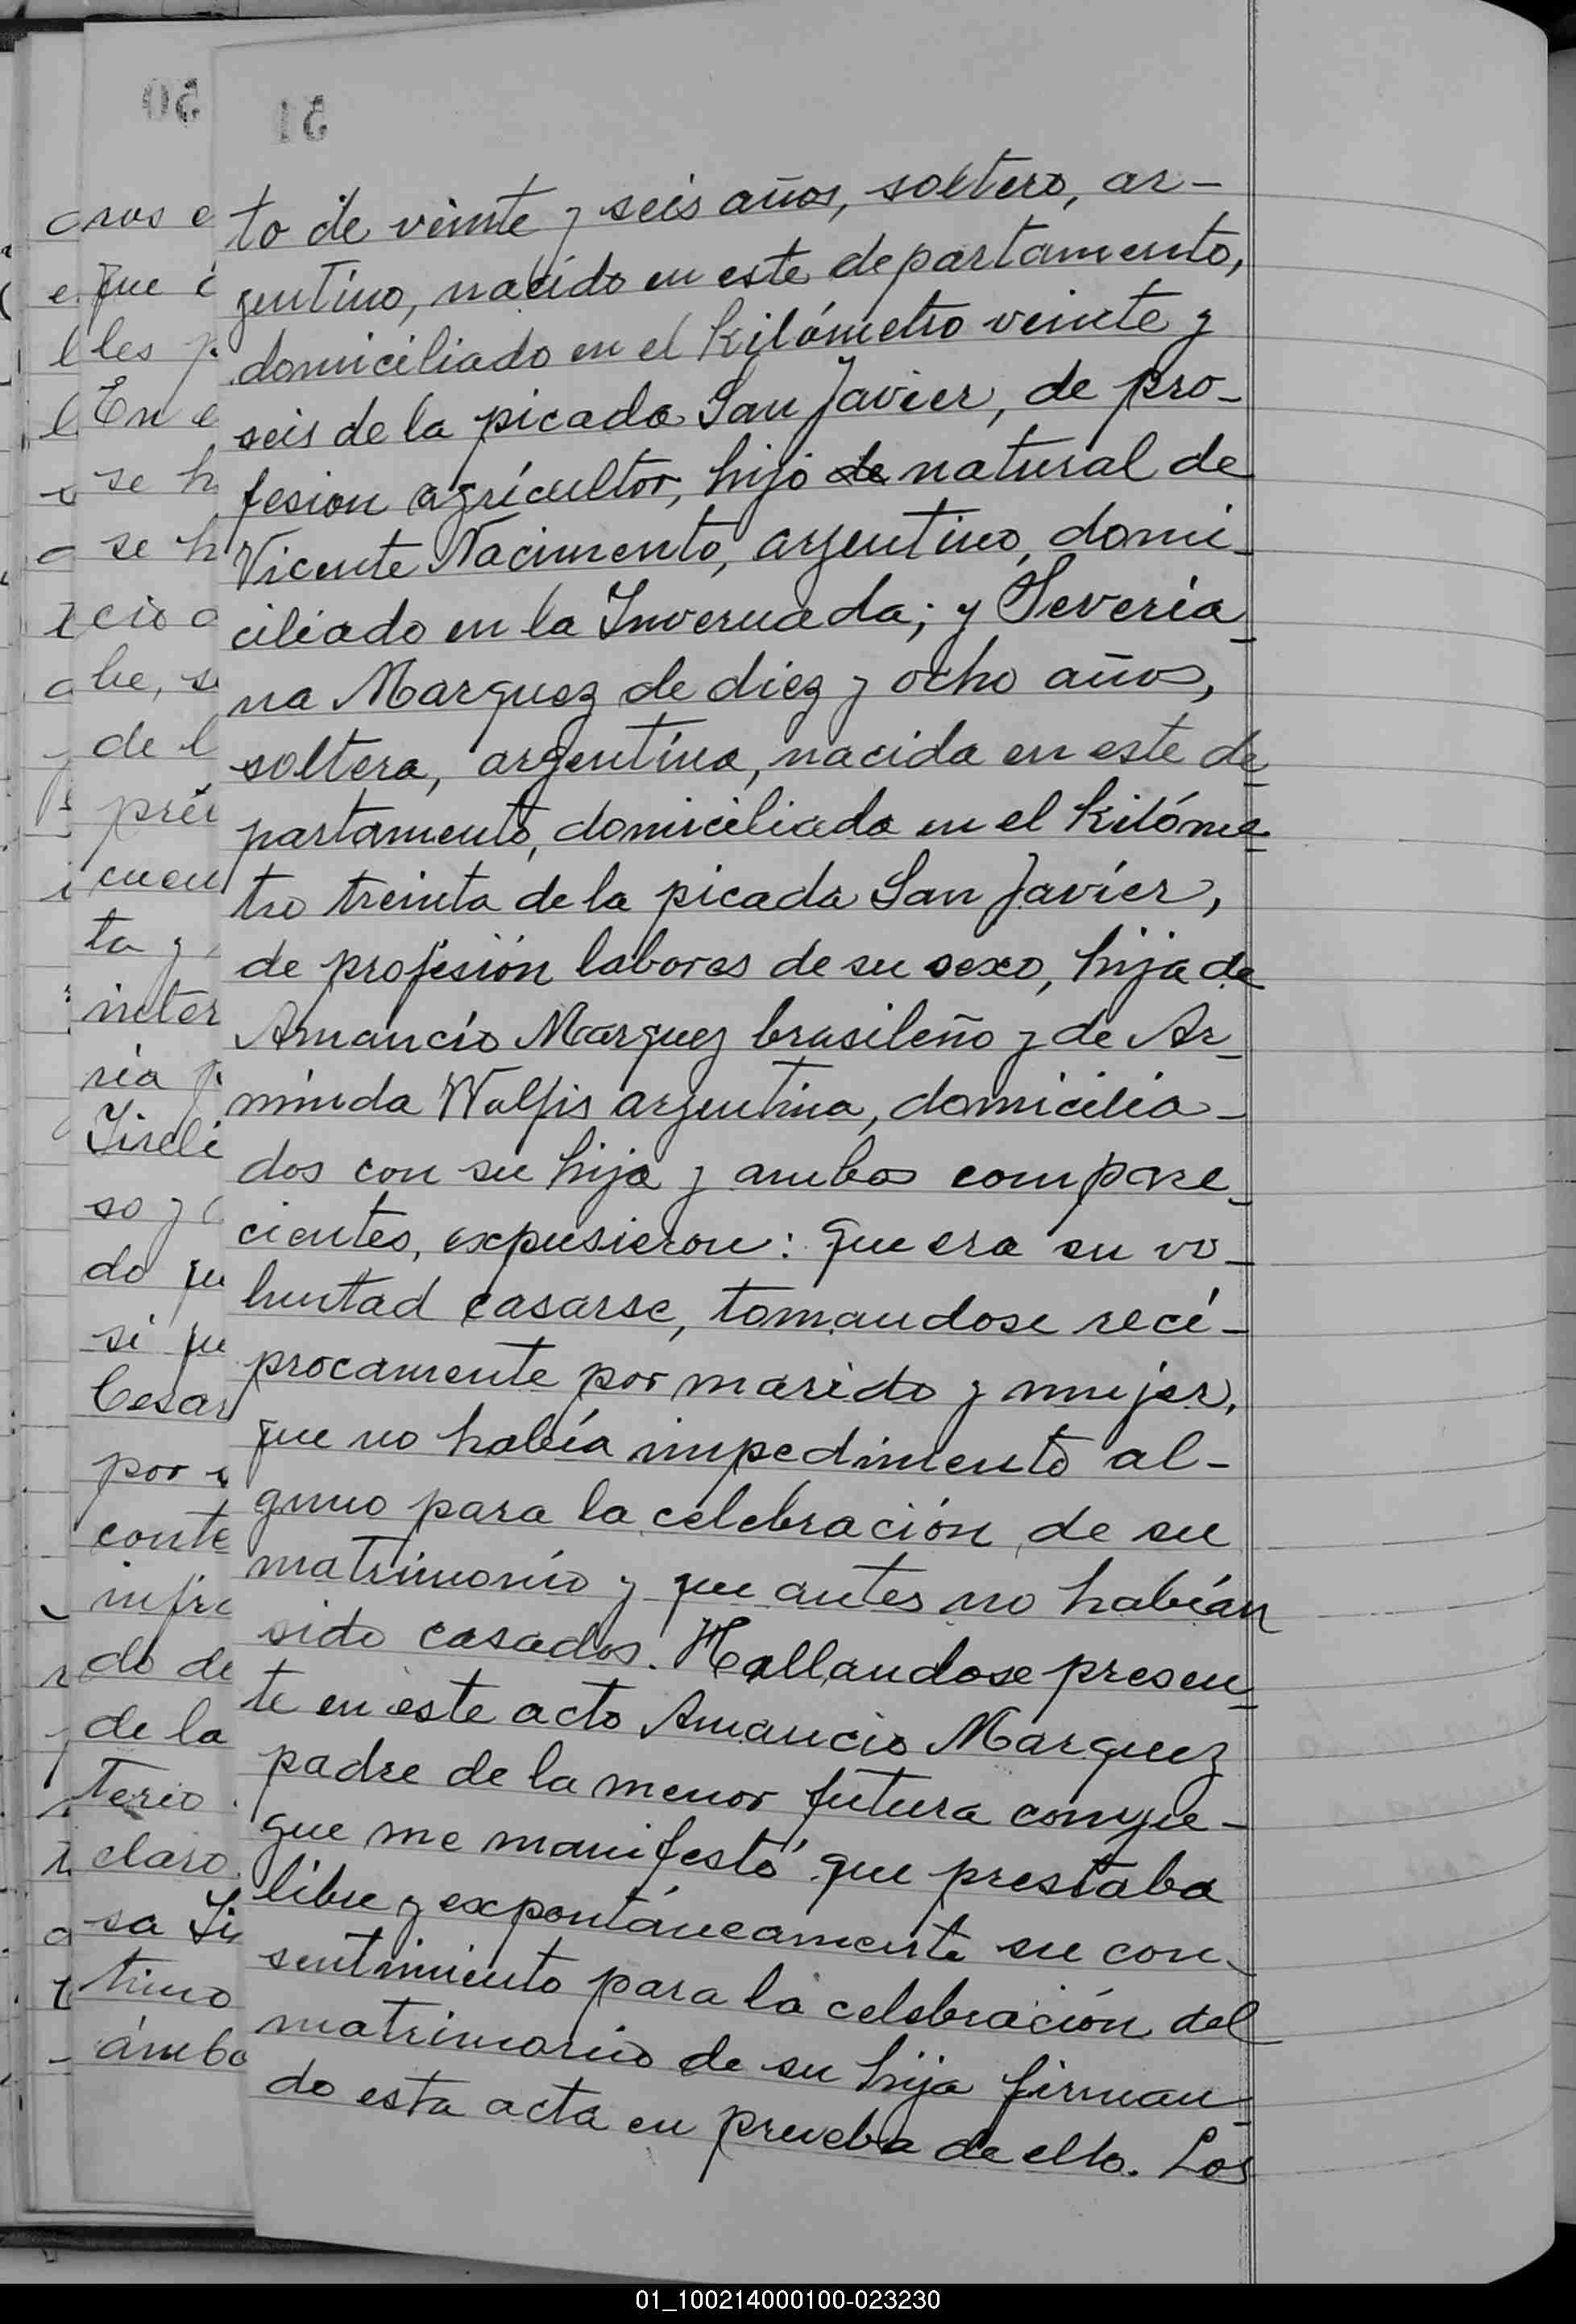 50
51
to de veinte y seis años, soltero, ar-
gentino, nacido en este departamento,
domiciliado en el kilómetro veinte y
seis de la picada San Javier, de pro-
fesion agrícultor, hijo de natural de
Vicente Nacimento, argentino, domi-
ciliado en la Invernada; y Severia-
na Marquez de diez y ocho años,
soltera, argentina, nacida en este de-
partamento, domiciliada en el kilóme-
tro treinta de la picada San Javier,
de profesión labores de su sexo, hija de
Amancio Marquez brasileño y de Ar-
minda Walfis argentina, domicilia-
dos con su hija y ambos compare-
cientes, expusieron: que era su vo-
luntad casarse, tomandose recí-
procamente por marido y mujer,
que no había impedimento al-
guno para la celebración de su
matrimonio y que antes no habían
sido casados. Hallandose presen-
te en este acto Amancio Marquez
padre de la menor futura conyu-
gue me manifestó que prestaba
libre y expontáneamente su con-
sentimiento para la celebración del
matrimonio de su hija firman-
do esta acta en prueba de ello. Los
01_100214000100-023230